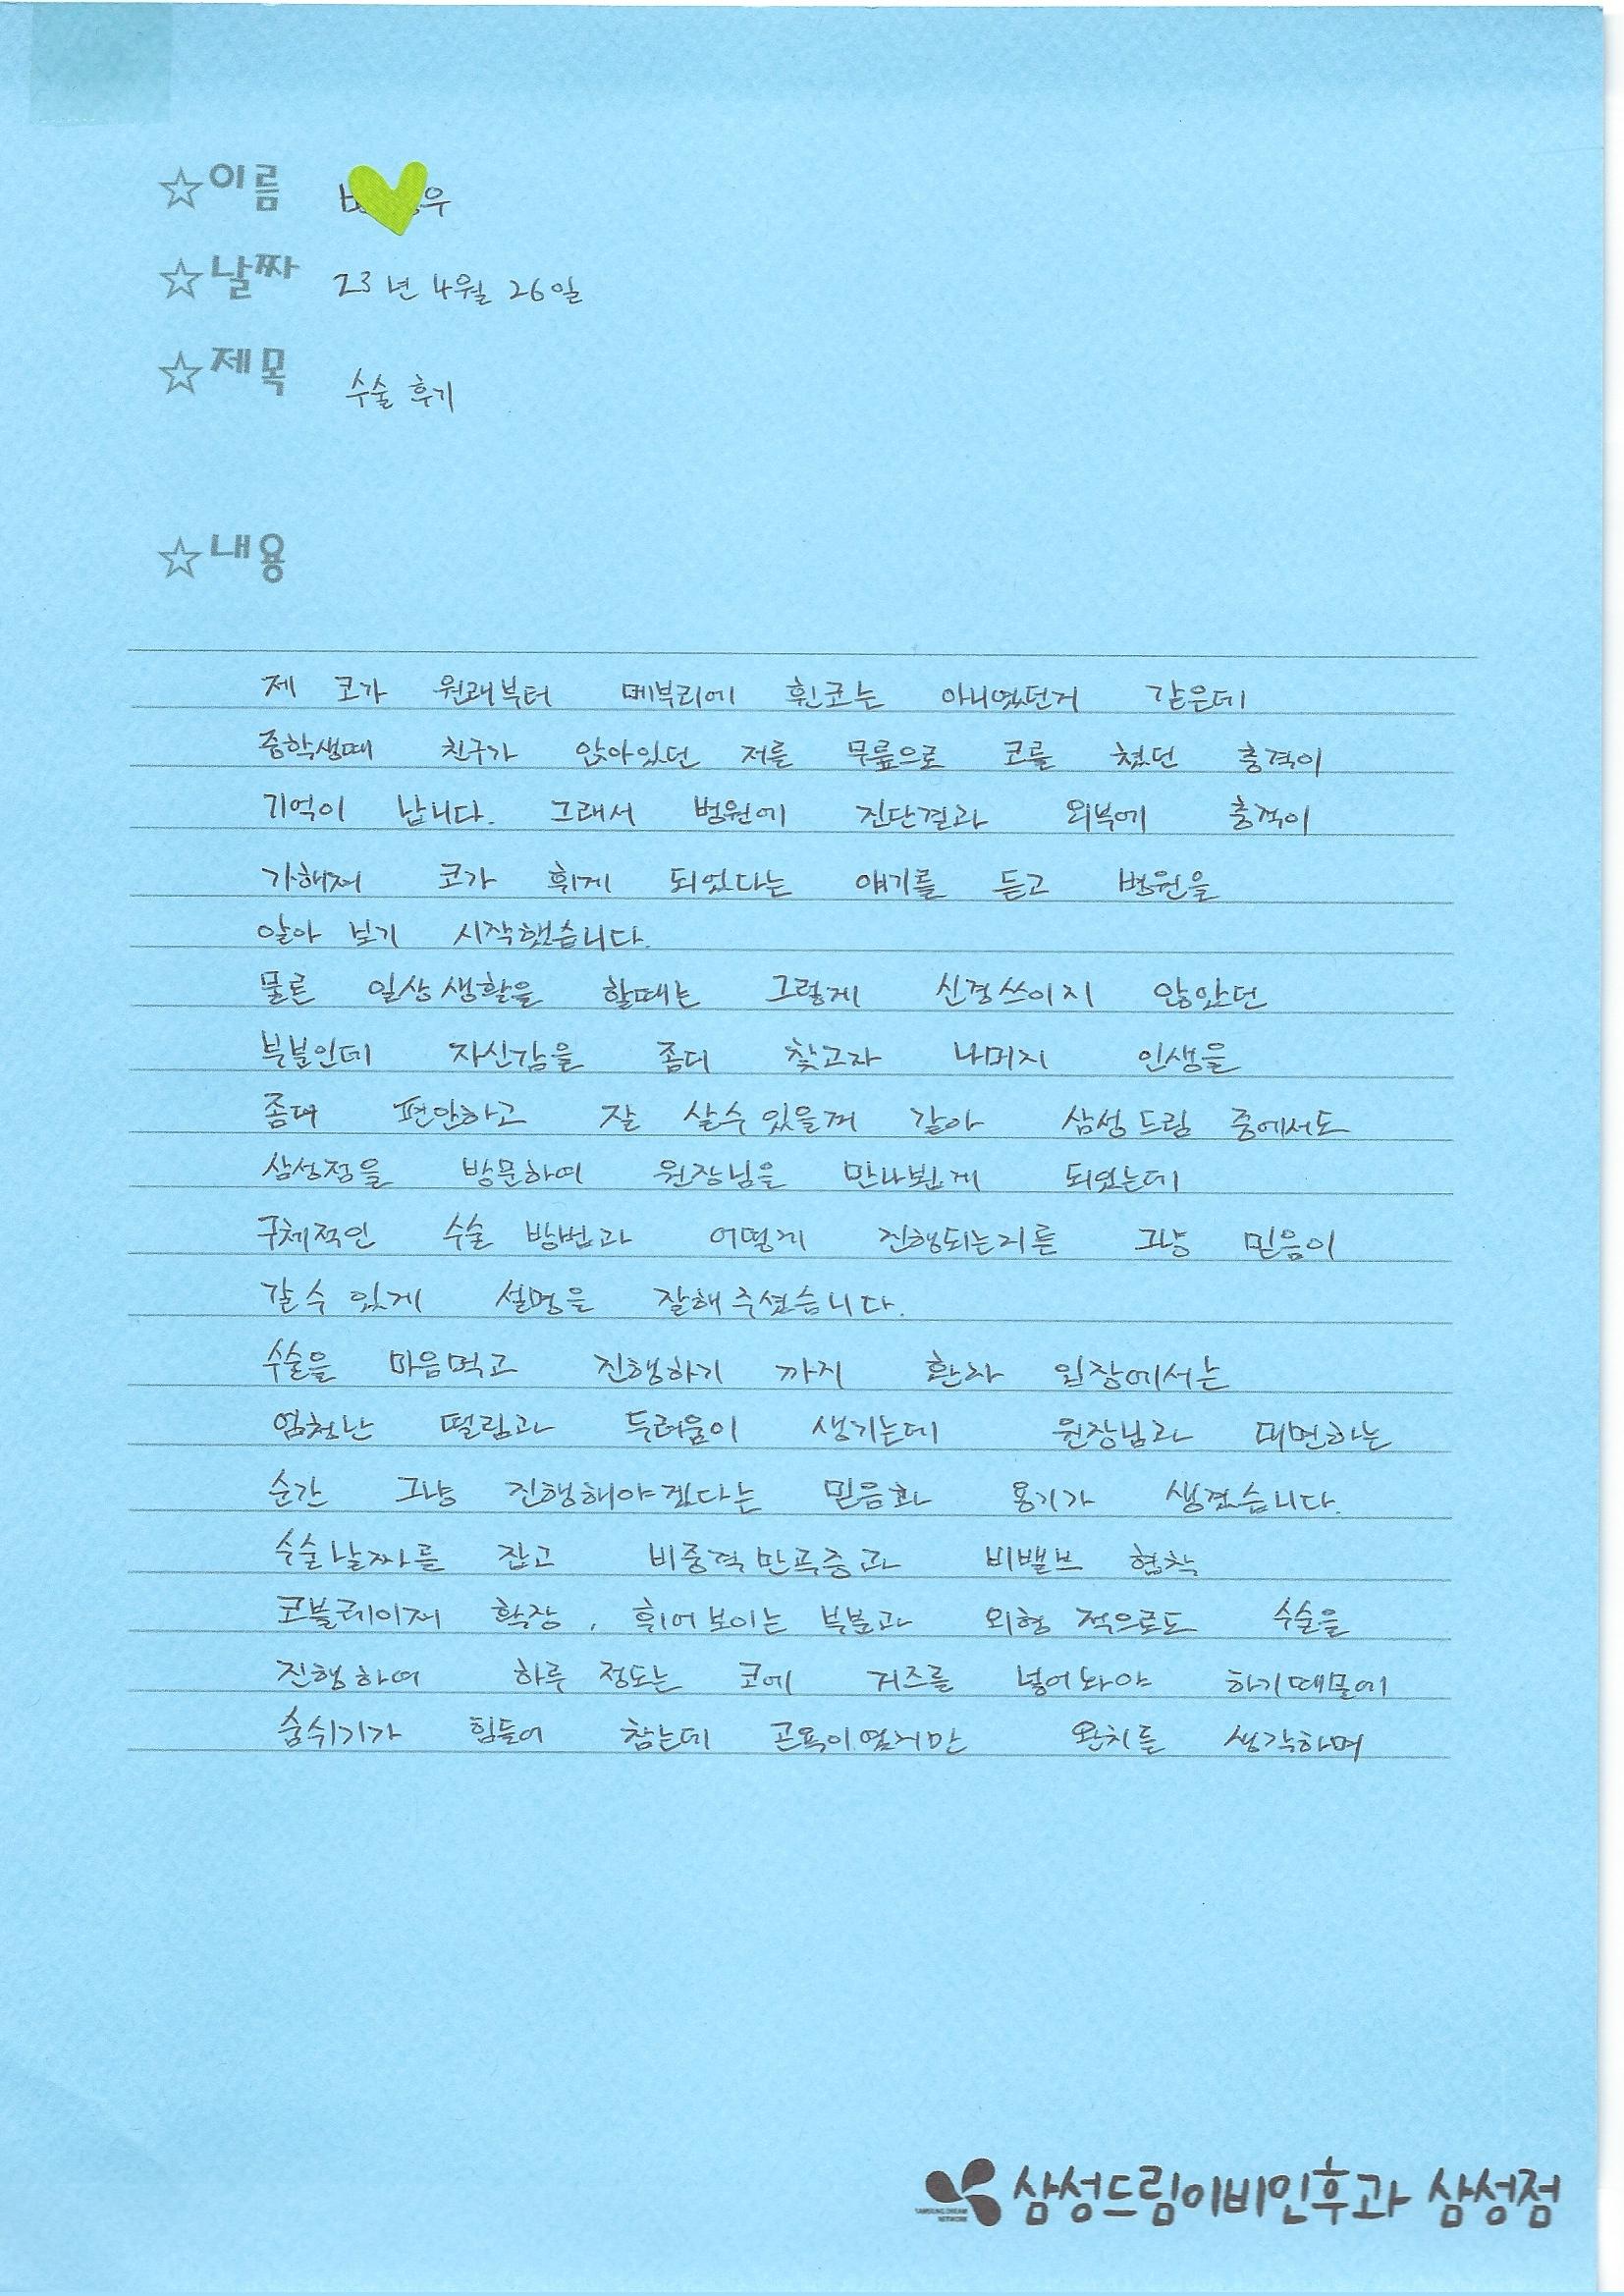 ☆이름 우
☆날짜 23년 4월 26일
☆제목 수술 후기
☆내용
제 코가 원래부터 메부리에 휜코는 아니였던거 같은데
중학생때 친구가 앉아있던 저를 무릎으로 코를 쳤던 충격이
기억이 납니다. 그래서 병원에 진단결과 외부에 충격이
가해져 코가 휘게 되었다는 얘기를 듣고 병원을
알아 보기 시작했습니다.
물론 일상생활을 할때는 그렇게 신경쓰이지 않았던
부분인데 자신감을 좀더 찾고자 나머지 인생을
좀더 편안하고 잘 살수있을꺼 같아 삼성드림 중에서도
삼성점을 방문하여 원장님을 만나뵙게 되었는데
구체적인 수술 방법과 어떻게 진행되는지를 그냥 믿음이
갈수 있게 설명을 잘해주셨습니다.
수술을 마음먹고 진행하기 까지 환자 입장에서는
엄청난 떨림과 두려움이 생기는데 원장님과 대면하는
순간 그냥 진행해야겠다는 믿음과 용기가 생겼습니다.
수술날짜를 잡고 비중격만곡증과 비밸브 협착
코블레이져 확장, 휘어보이는 부분과 외형 적으로도 수술을
진행하여 하루 정도는 코에 거즈를 넣어놔야 하기때문에
숨쉬기가 힘들어 참는데 곤욕이였지만 완치를 생각하며
SAMSUNG DREAM NETWORK
삼성드림이비인후과 삼성점